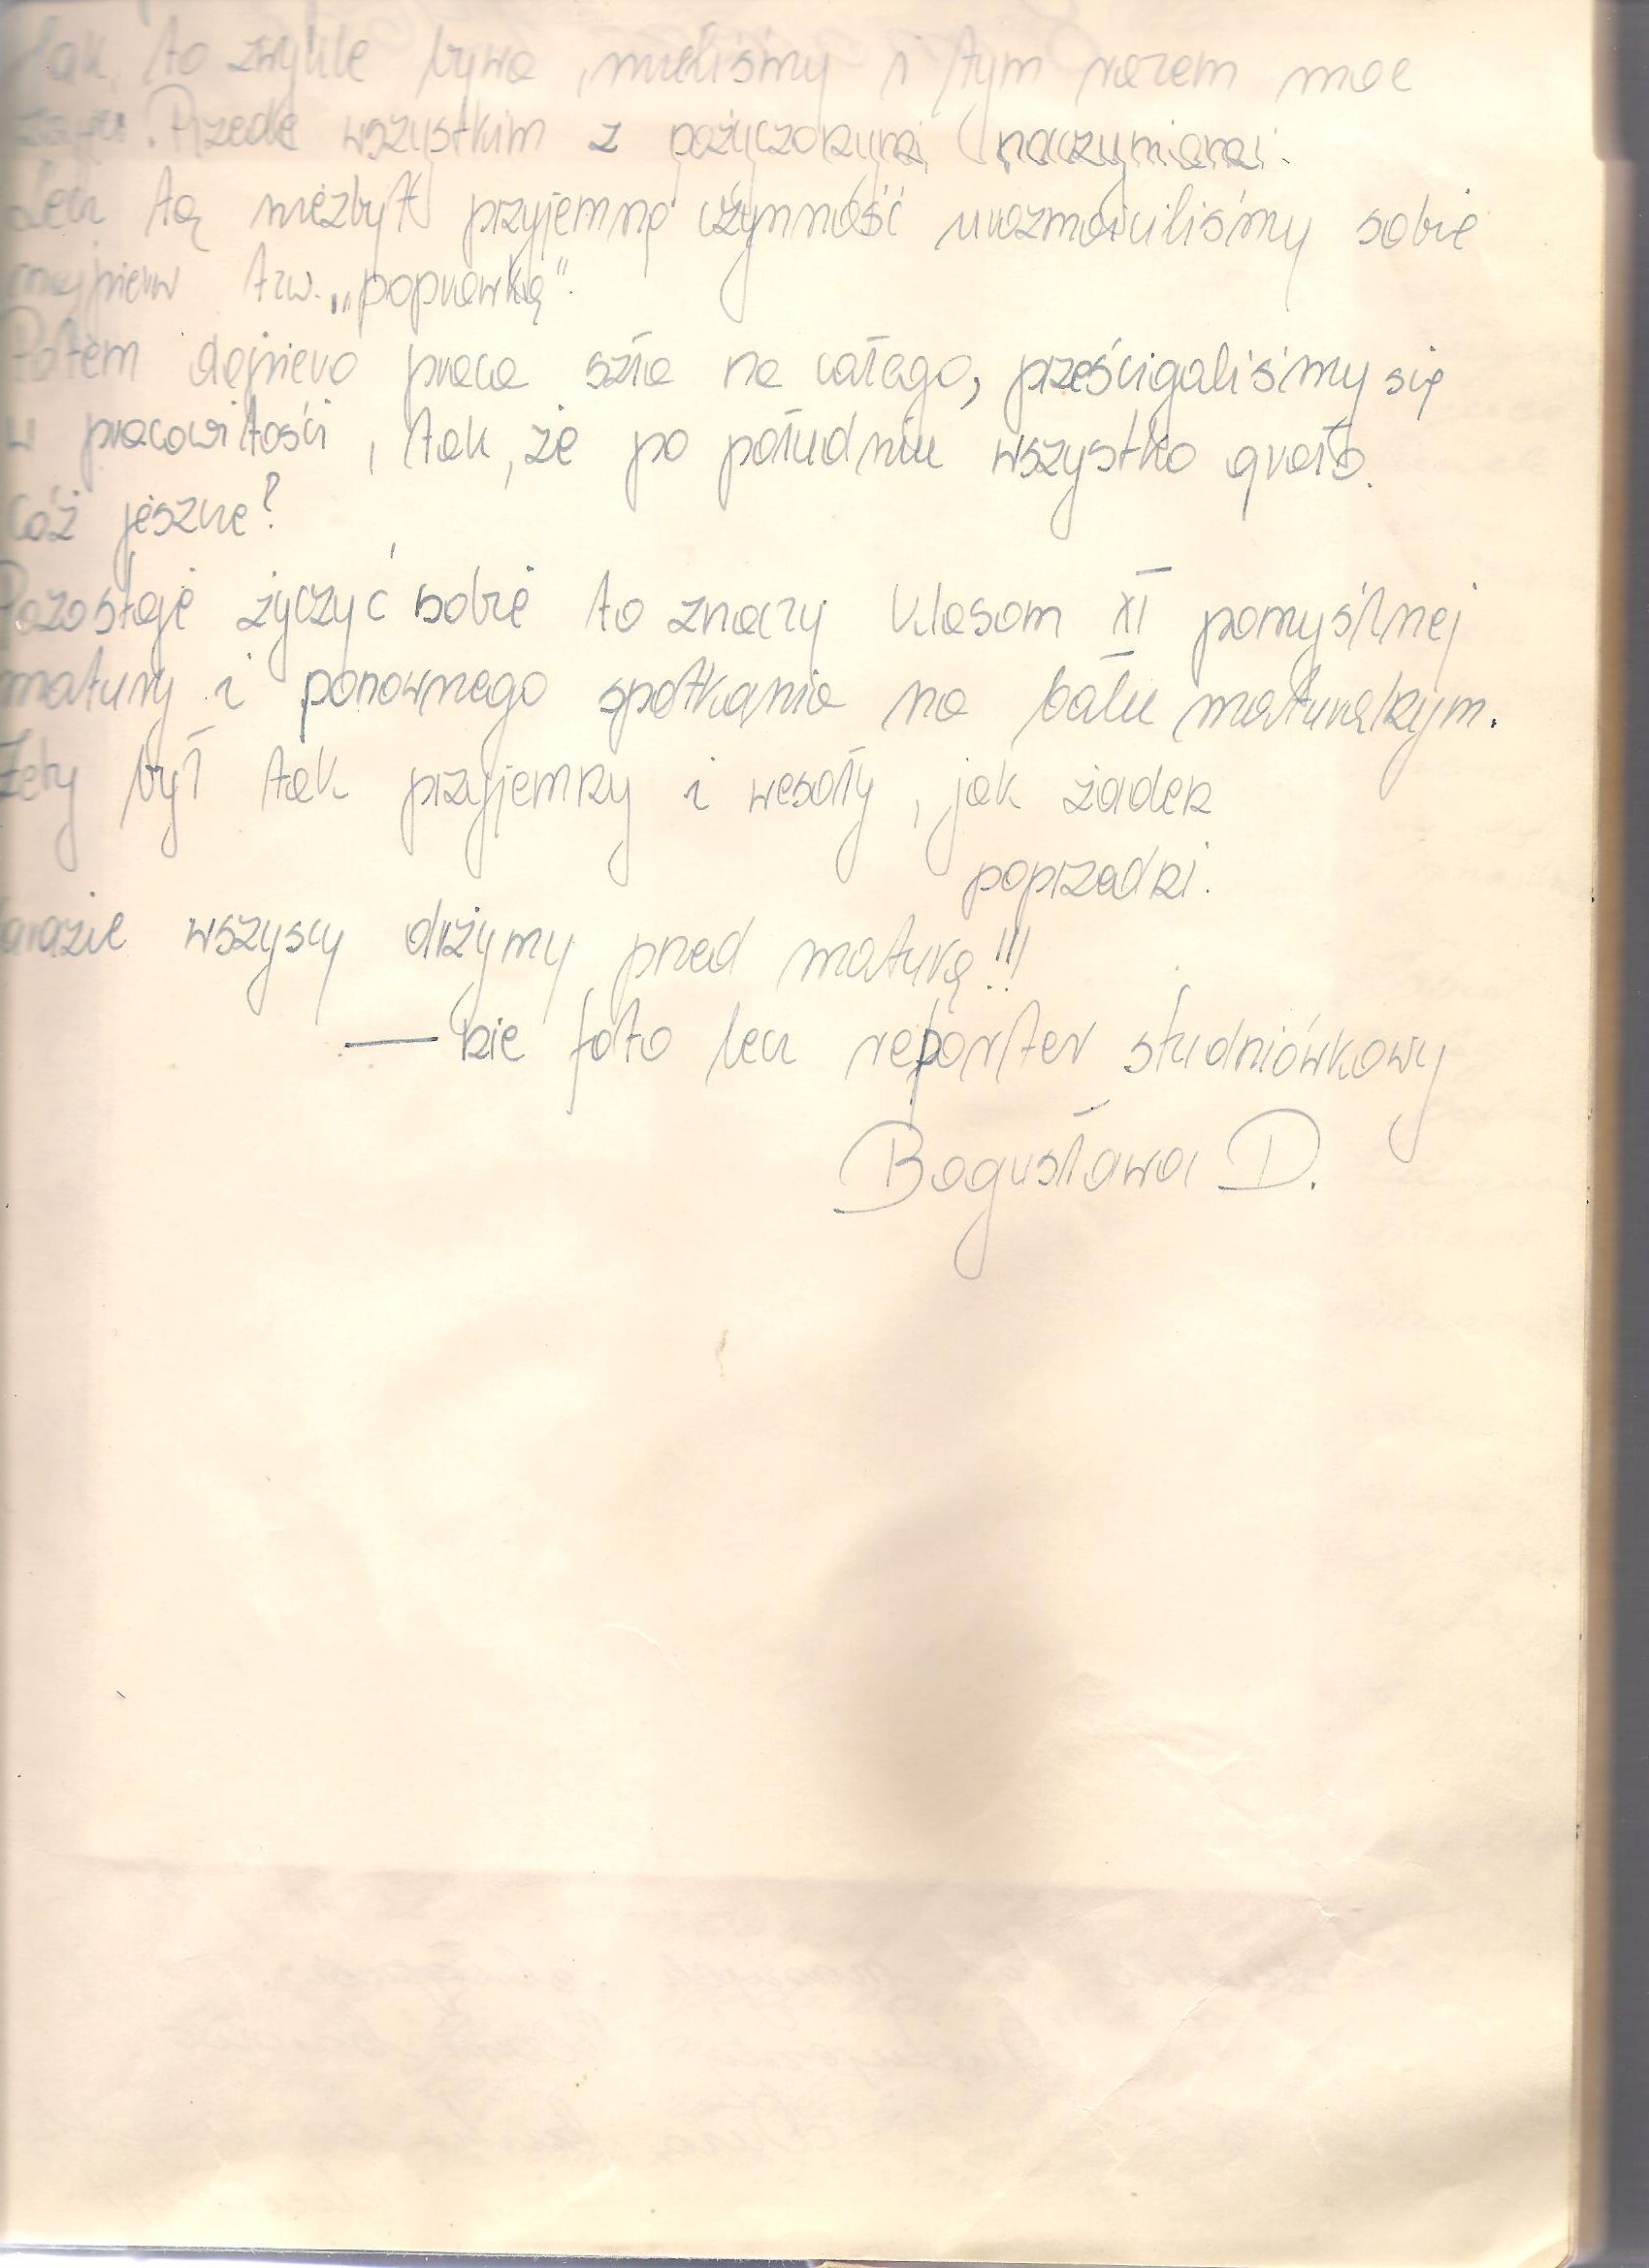 Jak to zwykle bywa, mieliśmy i tym razem moc
zajęć. Przede wszystkim z pożyczonymi naczyniami.
Lecz tą niezbyt przyjemną czynność urozmaiciliśmy sobie
najpierw tzw. „poprawką”.
Potem dopiero praca szła na całego, prześcigaliśmy się
w pracowitości, tak, że po południu wszystko grało.
Cóż jeszcze?
Pozostaje życzyć sobie to znaczy klasom XI pomyślnej
matury i ponownego spotkania na balu maturalnym.
Żeby był tak przyjemny i wesoły, jak żaden
poprzedni.
Narazie wszyscy drżymy przed maturą!!!
— nie foto lecz reporter studniówkowy
Bogusława D.